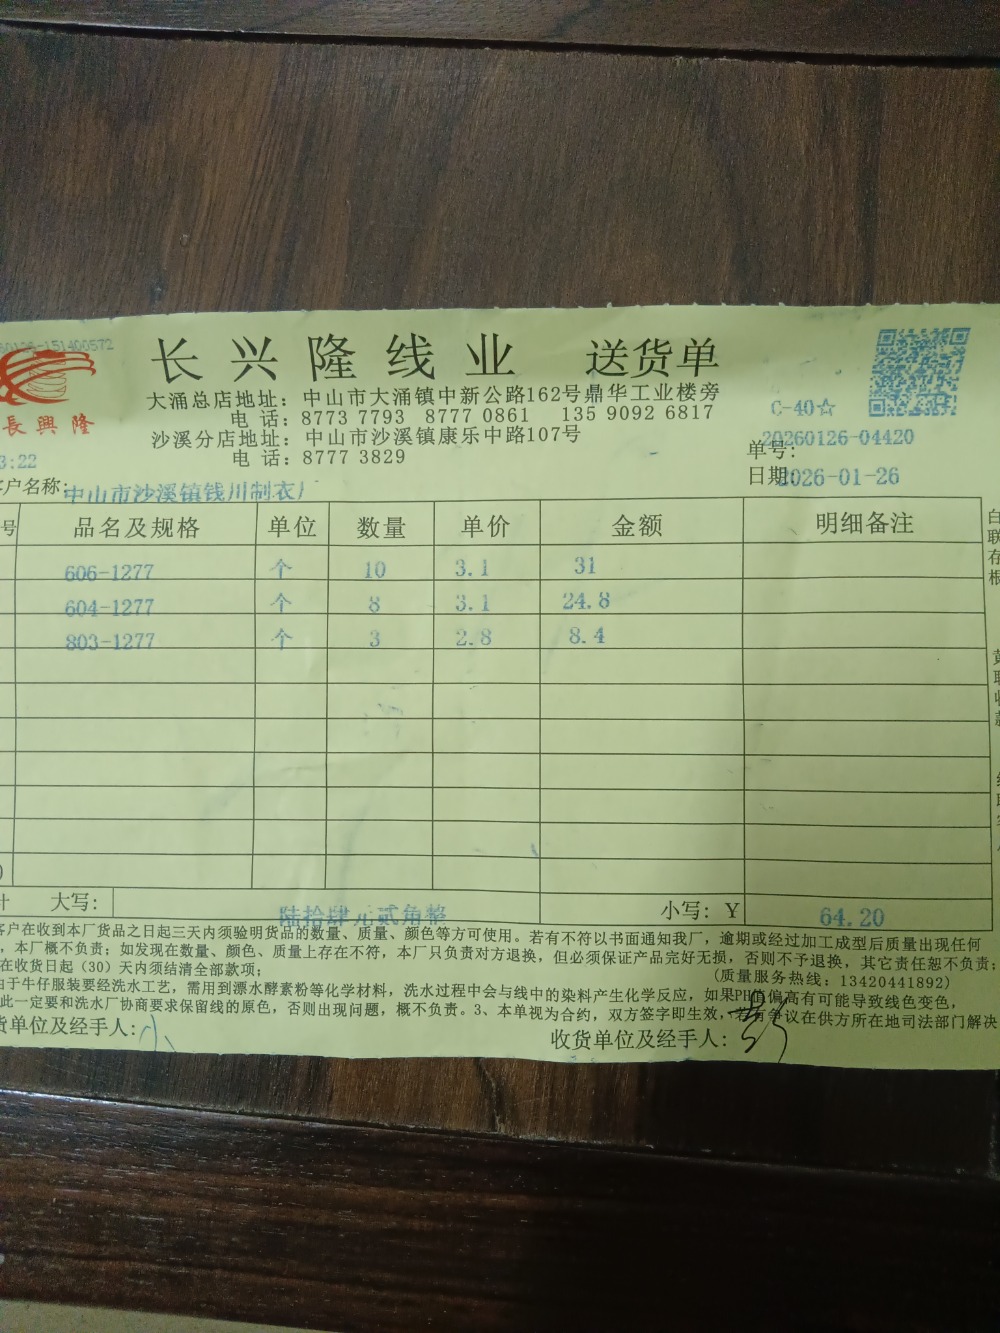 151400572
长兴隆线业 送货单
大涌总店地址：中山市大涌镇中新公路162号鼎华工业楼旁
电 话：8773 7793 8777 0861 135 9092 6817
沙溪分店地址：中山市沙溪镇康乐中路107号
电 话：8777 3829
長興隆
C-40☆
单号：20260126-04420
3:22
日期：2026-01-26
户名称：中山市沙溪镇钱川制衣厂
号 品名及规格 单位 数量 单价 金额 明细备注
606-1277 个 10 3.1 31
604-1277 个 8 3.1 24.8
803-1277 个 3 2.8 8.4
白联存根
大写： 陆拾肆元贰角整 小写：Y 64.20
客户在收到本厂货品之日起三天内须验明货品的数量、质量、颜色等方可使用。若有不符以书面通知我厂，逾期或经过加工成型后质量出现任何
，本厂概不负责；如发现在数量、颜色、质量上存在不符，本厂只负责对方退换，但必须保证产品完好无损，否则不予退换，其它责任恕不负责；
在收货日起（30）天内须结清全部款项；
（质量服务热线：13420441892）
由于牛仔服装要经洗水工艺，需用到漂水酵素粉等化学材料，洗水过程中会与线中的染料产生化学反应，如果PH值偏高有可能导致线色变色，
此一定要和洗水厂协商要求保留线的原色，否则出现问题，概不负责。3、本单视为合约，双方签字即生效，若有争议在供方所在地司法部门解决
货单位及经手人：
收货单位及经手人：